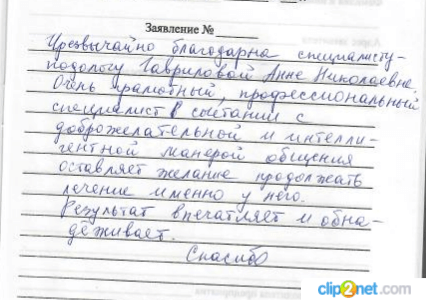 Заявление №
Чрезвычайно благодарна специалисту-
подологу Гавриловой Анне Николаевне.
Очень грамотный, профессиональный
специалист в сочетании с
доброжелательной и интелли-
гентной манерой общения
оставляет желание продолжать
лечение именно у него.
Результат впечатляет и обна-
дёживает.
Спасибо
clip2net.com